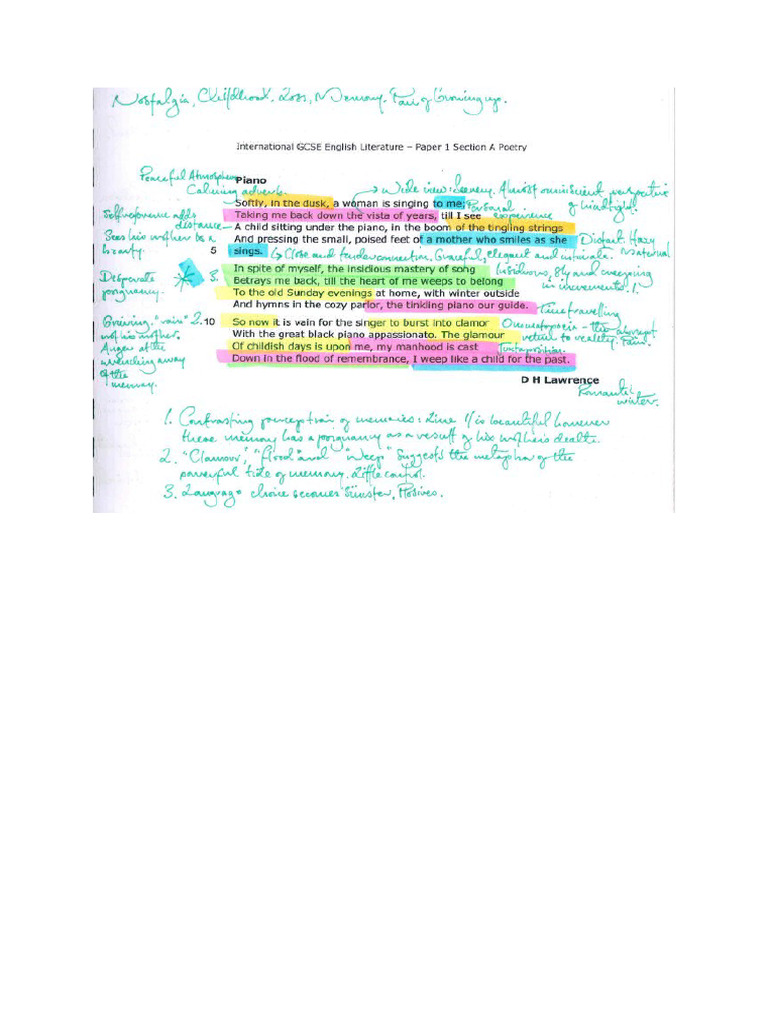 Nostalgia, Childhood, Loss, Memory. Pain of Growing up.
International GCSE English Literature – Paper 1 Section A Poetry
Peaceful Atmosphere
Piano
Calming adverb.
→ Wide view: Scenery. Almost omniscient perspective
of hindsight.
Softly, in the dusk, a woman is singing to me;
Personal
experience
Self reference adds
distance
Taking me back down the vista of years, till I see
A child sitting under the piano, in the boom of the tingling strings
Sees his mother be a
beauty.
And pressing the small, poised feet of a mother who smiles as she
Distant. Hazy
Maternal
5 sings.
Close and tender connection. Graceful, elegant and intimate.
Desperate
poignancy.
3.
In spite of myself, the insidious mastery of song
Insidious, sly and creeping
in increments!
Betrays me back, till the heart of me weeps to belong
To the old Sunday evenings at home, with winter outside
And hymns in the cozy parlor, the tinkling piano our guide.
Time travelling
Grieving. "vain"
of his mother.
Anger at the
wrenching away
of the
memory.
2.
10 So now it is vain for the singer to burst into clamor
Onomatopoeia - the abrupt
return to reality. Pain.
With the great black piano appassionato. The glamour
Of childish days is upon me, my manhood is cast
Juxtaposition.
Down in the flood of remembrance, I weep like a child for the past.
D H Lawrence
Romantic
writer.
1. Contrasting perception of memories: Line 1/is beautiful however
these memory has a poignancy as a result of his mother's death.
2. "Clamour", "flood" and "weep" Suggests the metaphor of the
powerful tide of memory. Little control.
3. Language choice becomes Sinister. Plosives.